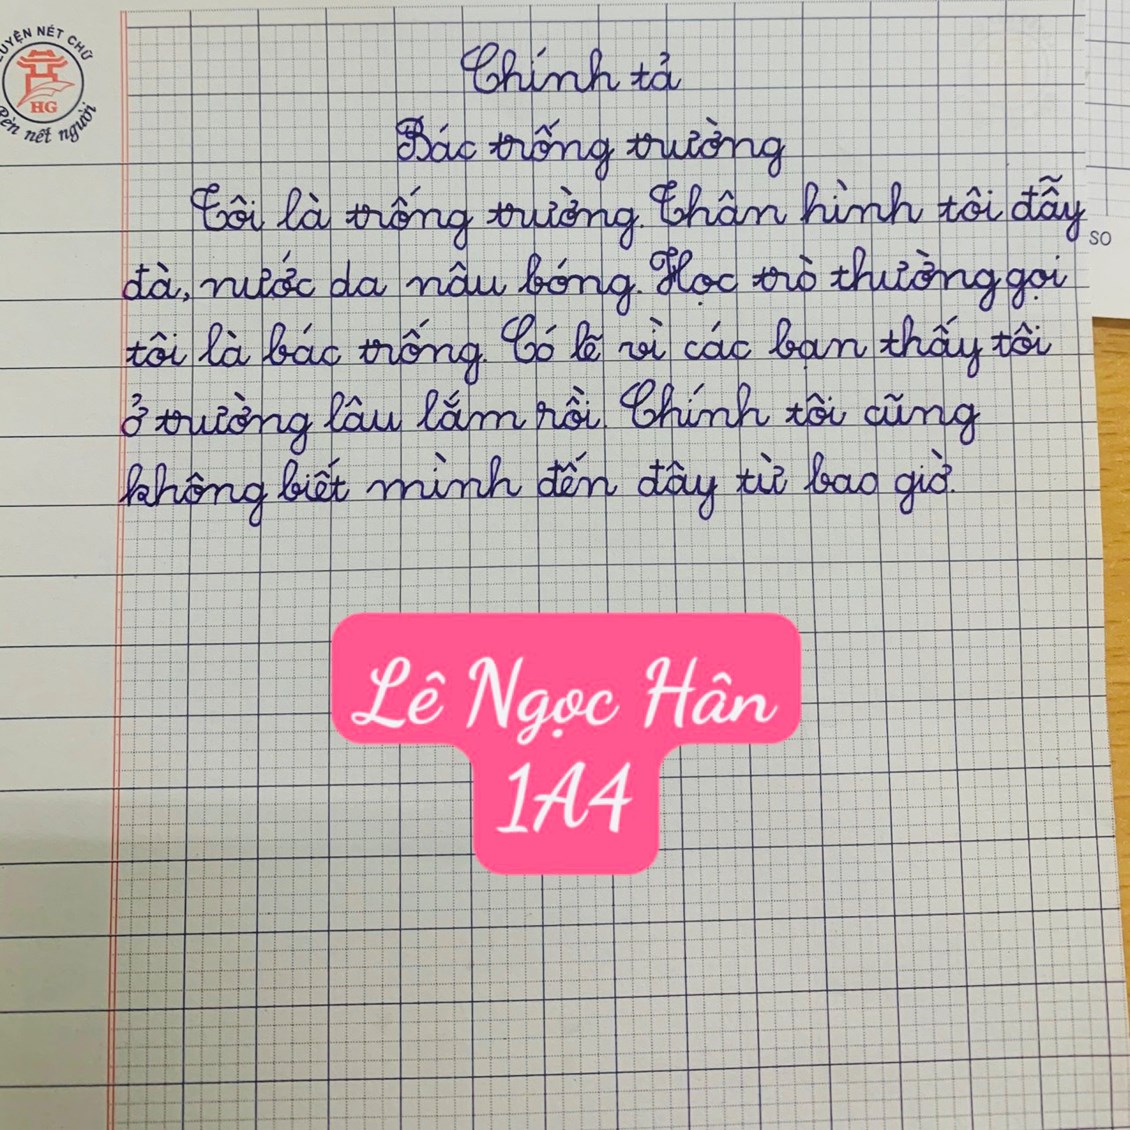 LUYỆN NÉT CHỮ
HG
Rèn nết người
Chính tả
Bác trống trường
Tôi là trống trường. Thân hình tôi đẫy
đà, nước da nâu bóng. Học trò thường gọi
tôi là bác trống. Có lẽ vì các bạn thấy tôi
ở trường lâu lắm rồi. Chính tôi cũng
không biết mình đến đây từ bao giờ.
SO
Lê Ngọc Hân
1A4